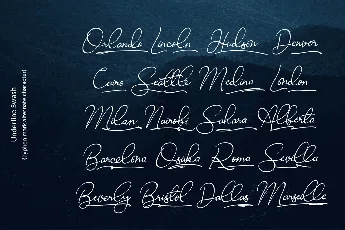 Orlando Lincoln Hudson Denver
Cairo Seattle Medina London
Milan Nairobi Sahara Alberta
Barcelona Osaka Roma Sevilla
Beverly Bristol Dallas Marseille
Underline Swash